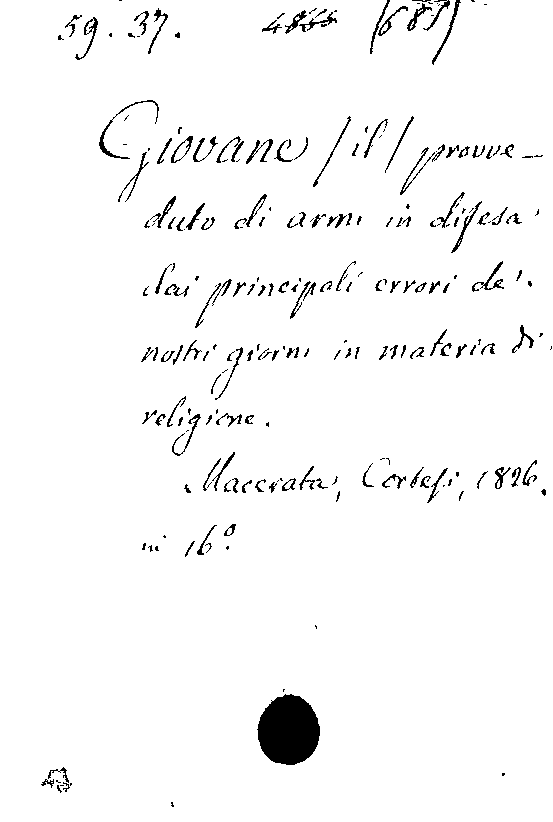 59. 37. (685)
Giovane /il/ provve-
duto di armi in difesa
dai principali errori de'
nostri giorni in materia di
religione.
Macerata, Cortesi, 1826.
in 16.º